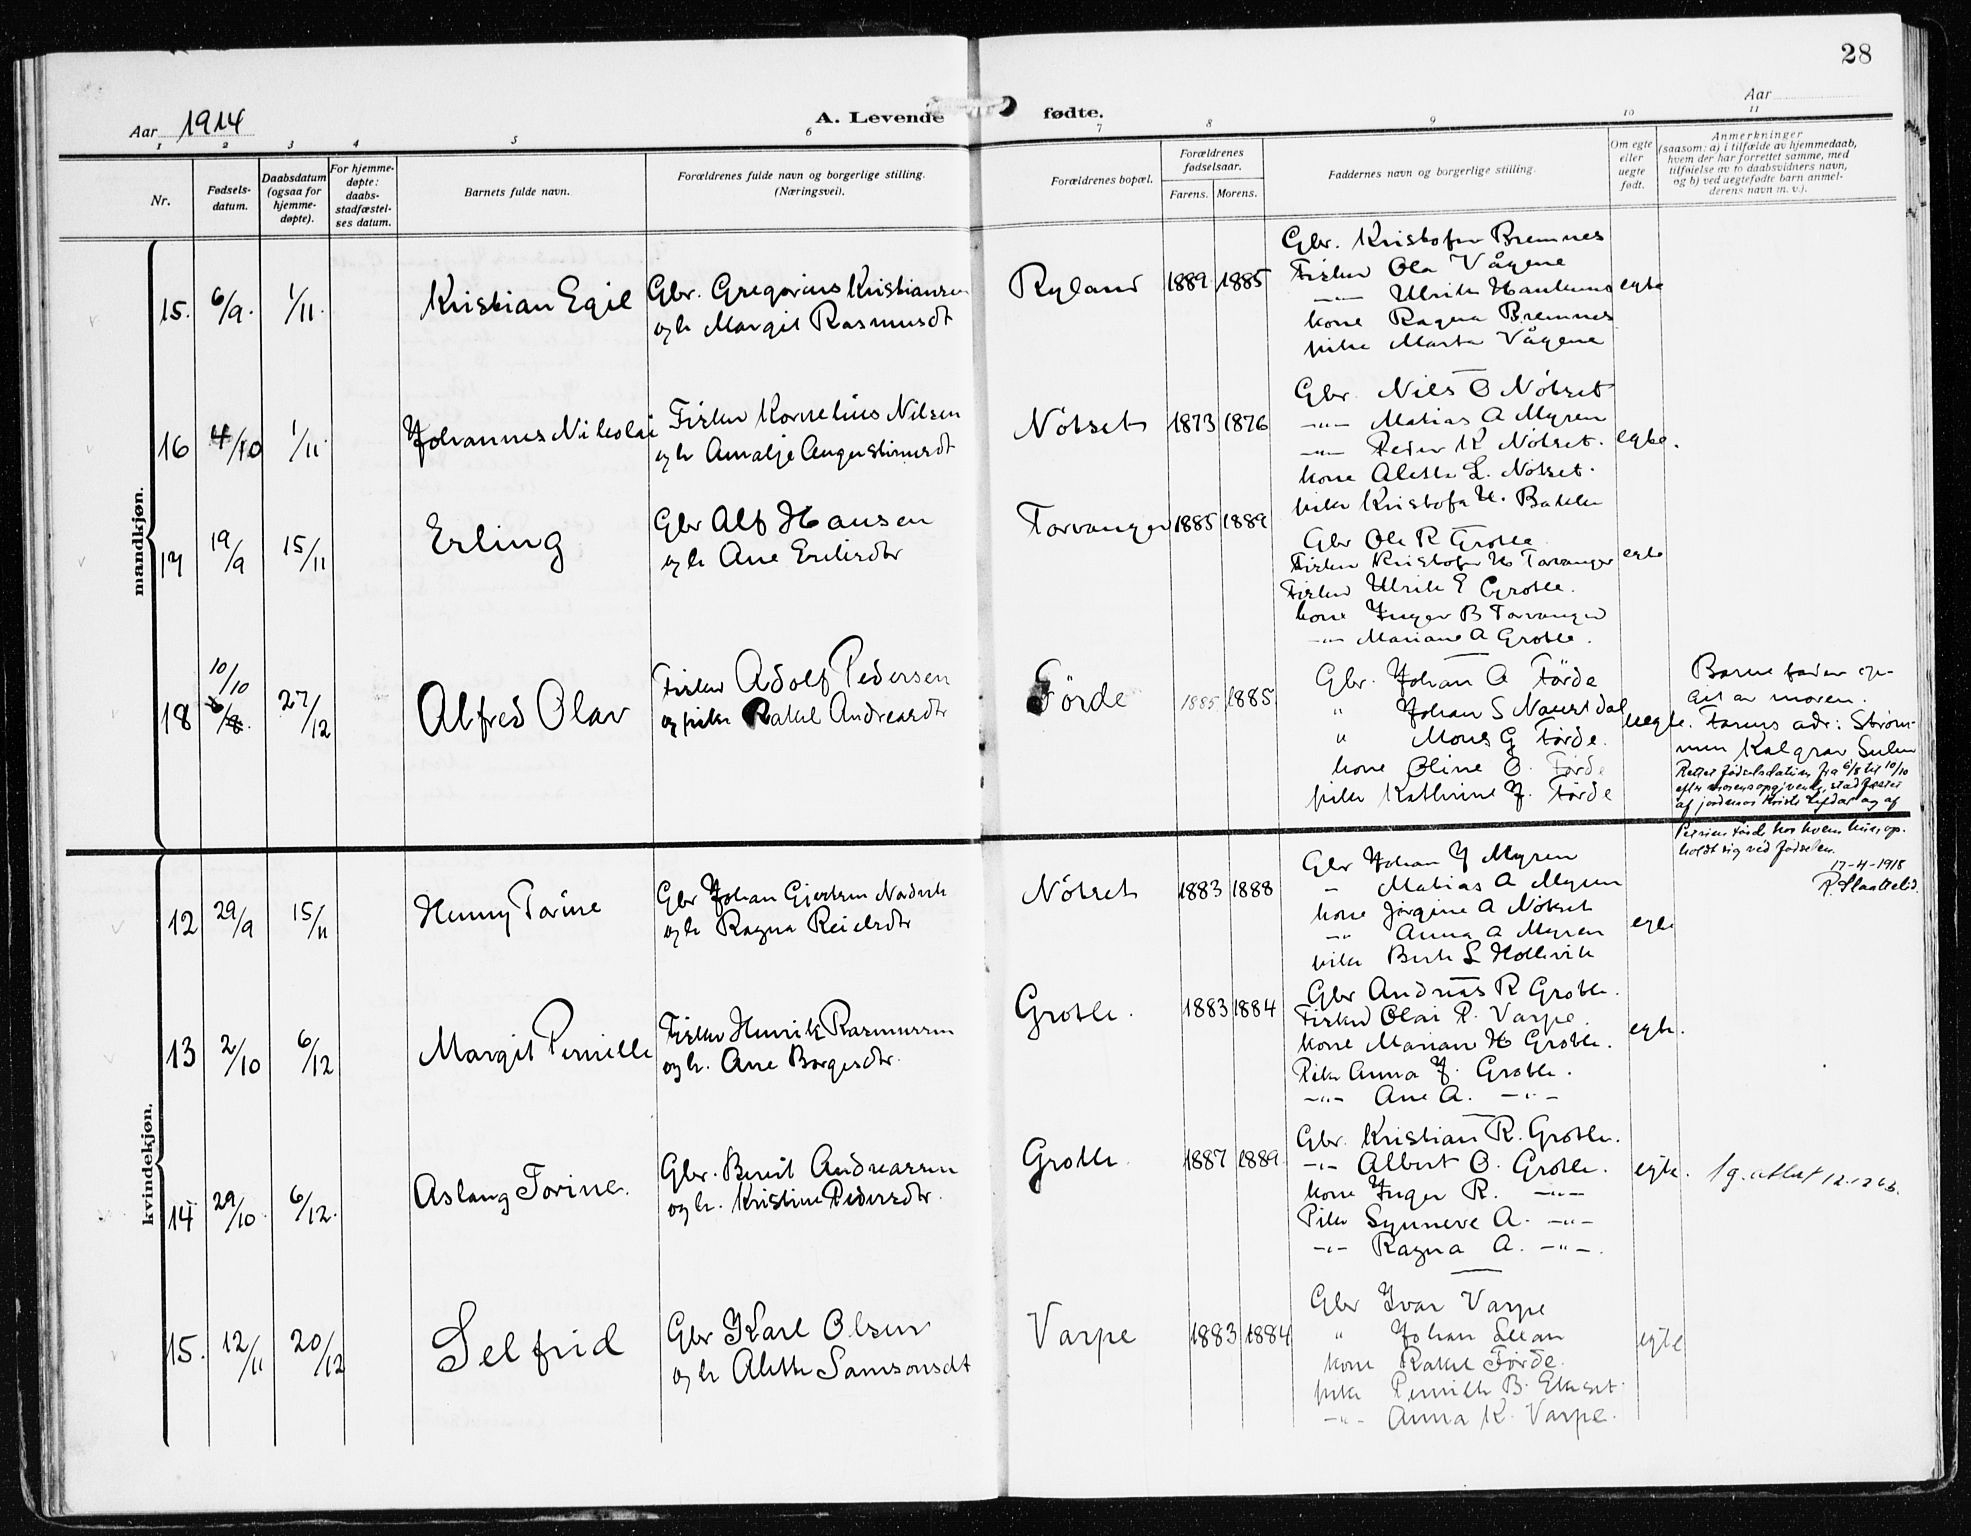 28
Aar 1914
A. Levende fødte.
Aar
1 2 3 4 5 6 7 8 9 10 11
Nr.
Fødsels-
datum.
Daabsdatum
(ogsaa for
hjemme-
døpte).
For hjemme-
døpte:
daabs-
stadfæstel-
ses datum.
Barnets fulde navn.
Forældrenes fulde navn og borgerlige stilling.
(Næringsvei).
Forældrenes bopæl.
Forældrenes
fødselsaar.
Farens. Morens.
Faddernes navn og borgerlige stilling.
Om egte
eller
uegte
født.
Anmerkninger
(saasom: a) i tilfælde av hjemmedaab,
hvem der har forrettet samme, med
tilføielse av to daabsvidners navn,
og b) ved uegtefødte barn anmel-
derens navn m. v.).
mandkjøn.
15. 6/9. 1/11. Kristian Egil
Gbr. Gregorius Kristiansen
og h Margit Rasmusdt
Ryland 1889 1885
Gbr. Kristofer Bremnes
Fisker Ola Vågene
-"- Ulrik
kone Ragna Bremnes
pike Marta Vågene
egte
16 4/10 1/11 Johannes Nikolai
Fisker Kornelius Nilsen
og h Amalje Augustinusdt
Nötset 1873 1876
Gbr. Nils O Nötset
-"- Matias A Myren
-"- Peder K Nötset.
kone Alette L. Nötset.
pike Kristofa H. Bakke
egte.
17 19/9 15/11 Erling
Gbr Alf Hansen
og h Ane Eriksdtr
Torvanger 1885 1889
Gbr Ole R Grotle
Fisker Kristofer H Torvanger
Fisker Ulrik E Grotle.
kone Inger B Torvanger
-"- Mariane A Grotle.
egte
18 10/10 6/8. 27/12 Alfred Olav
Fisker Adolf Pedersen
og pike Rakel Andreasdtr
Förde 1885 1885
Gbr. Johan A Förde
" Johan S Naustdal
" Mons G Förde.
kone Oline O. Förde
pike Kathrine J. Förde
uegte.
Barnefader op-
git av moren.
Farens adr: Ström-
men Kalgrav Sulen
Rettet fødselsdatum fra 6/8 til 10/10
efter morens opgivende, stadfæstet
af jordemor
holdt sig ved fødselen.
17-4-1918
kvindekjøn.
12 29/9 15/11 Henny Torine
Gbr Johan Gjertsen Nordvik
og h Ragna Reielsdtr
Nötset 1883 1888
Gbr Johan J Myren
" Matias A Myren
kone Jörgine A Nötset
-"- Anna A Myren
pike Berte L Hollevik
egte
13 2/10 6/12 Margit Pernille
Fisker Henrik Rasmussen
og h. Ane Borgesdtr.
Grotle. 1883 1884
Gbr Andreas R Grotle.
Fisker Olai P. Varpe.
kone Mariane H Grotle.
Pike Anna J. Grotle.
-"- Ane A. -"-
egte.
14 29/10 6/12. Aslaug Torine.
Gbr. Berent Andreassen
og h. Kristine Pedersdtr.
Grotle. 1887 1889.
Gbr. Kristian R. Grotle.
-"- Albert O. Grotle.
kone Inger R. -"-
Pike Synneve A. -"-
-"- Ragna A. -"-.
egte.
15. 12/11 20/12 Selfrid
Gbr Karl Olsen
og h Alette Samsonsdt
Varpe 1883 1884
Gbr Ivar Varpe
" Johan Leean
kone Rakel Förde.
pike Pernille B.
-"- Anna K. Varpe.
egte